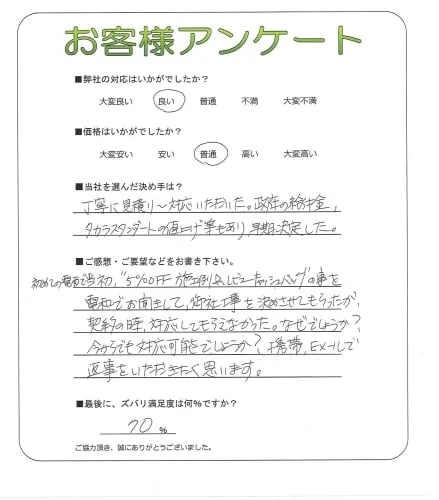 お客様アンケート
■弊社の対応はいかがでしたか？
大変良い 良い 普通 不満 大変不満
■価格はいかがでしたか？
大変安い 安い 普通 高い 大変高い
■当社を選んだ決め手は？
丁寧に見積り〜対応いただいた。政府の給付金、
タカラスタンダードの値上げ等もあり、早期決定した。
■ご感想・ご要望などをお書き下さい。
初めての電話で当初、"5%OFF 施工例&レビューキャッシュバック"の事を
電話でお聞きして、御社工事を決めさせてもらったが、
契約の時、対応してもらえなかった。なぜでしょうか？
今からでも対応可能でしょうか？携帯、Eメールで
返事をいただきたく思います。
■最後に、ズバリ満足度は何％ですか？
70 %
ご協力頂き、誠にありがとうございました。